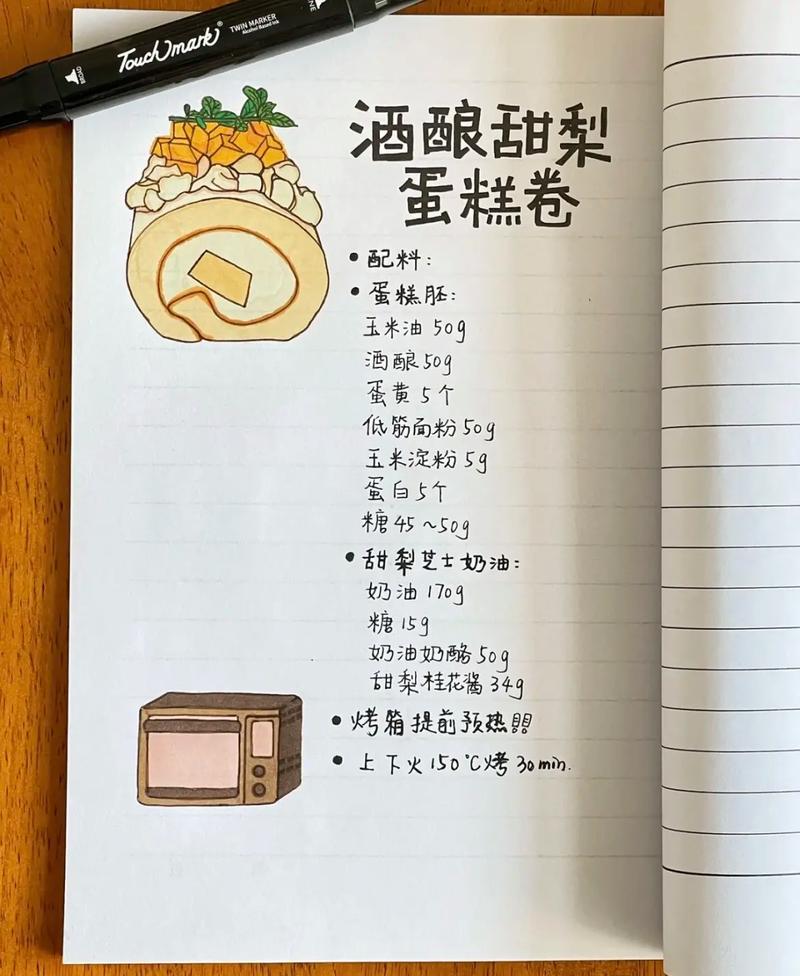 Touchmark
TWIN MARKER
Alcohol Based Ink
BROAD
酒酿甜梨
蛋糕卷
• 配料:
• 蛋糕胚:
玉米油 50g
酒酿 50g
蛋黄 5个
低筋面粉 50g
玉米淀粉 5g
蛋白 5个
糖 45~50g
• 甜梨芝士奶油:
奶油 170g
糖 15g
奶油奶酪 50g
甜梨桂花酱 34g
• 烤箱提前预热!!!
• 上下火150℃烤30min.